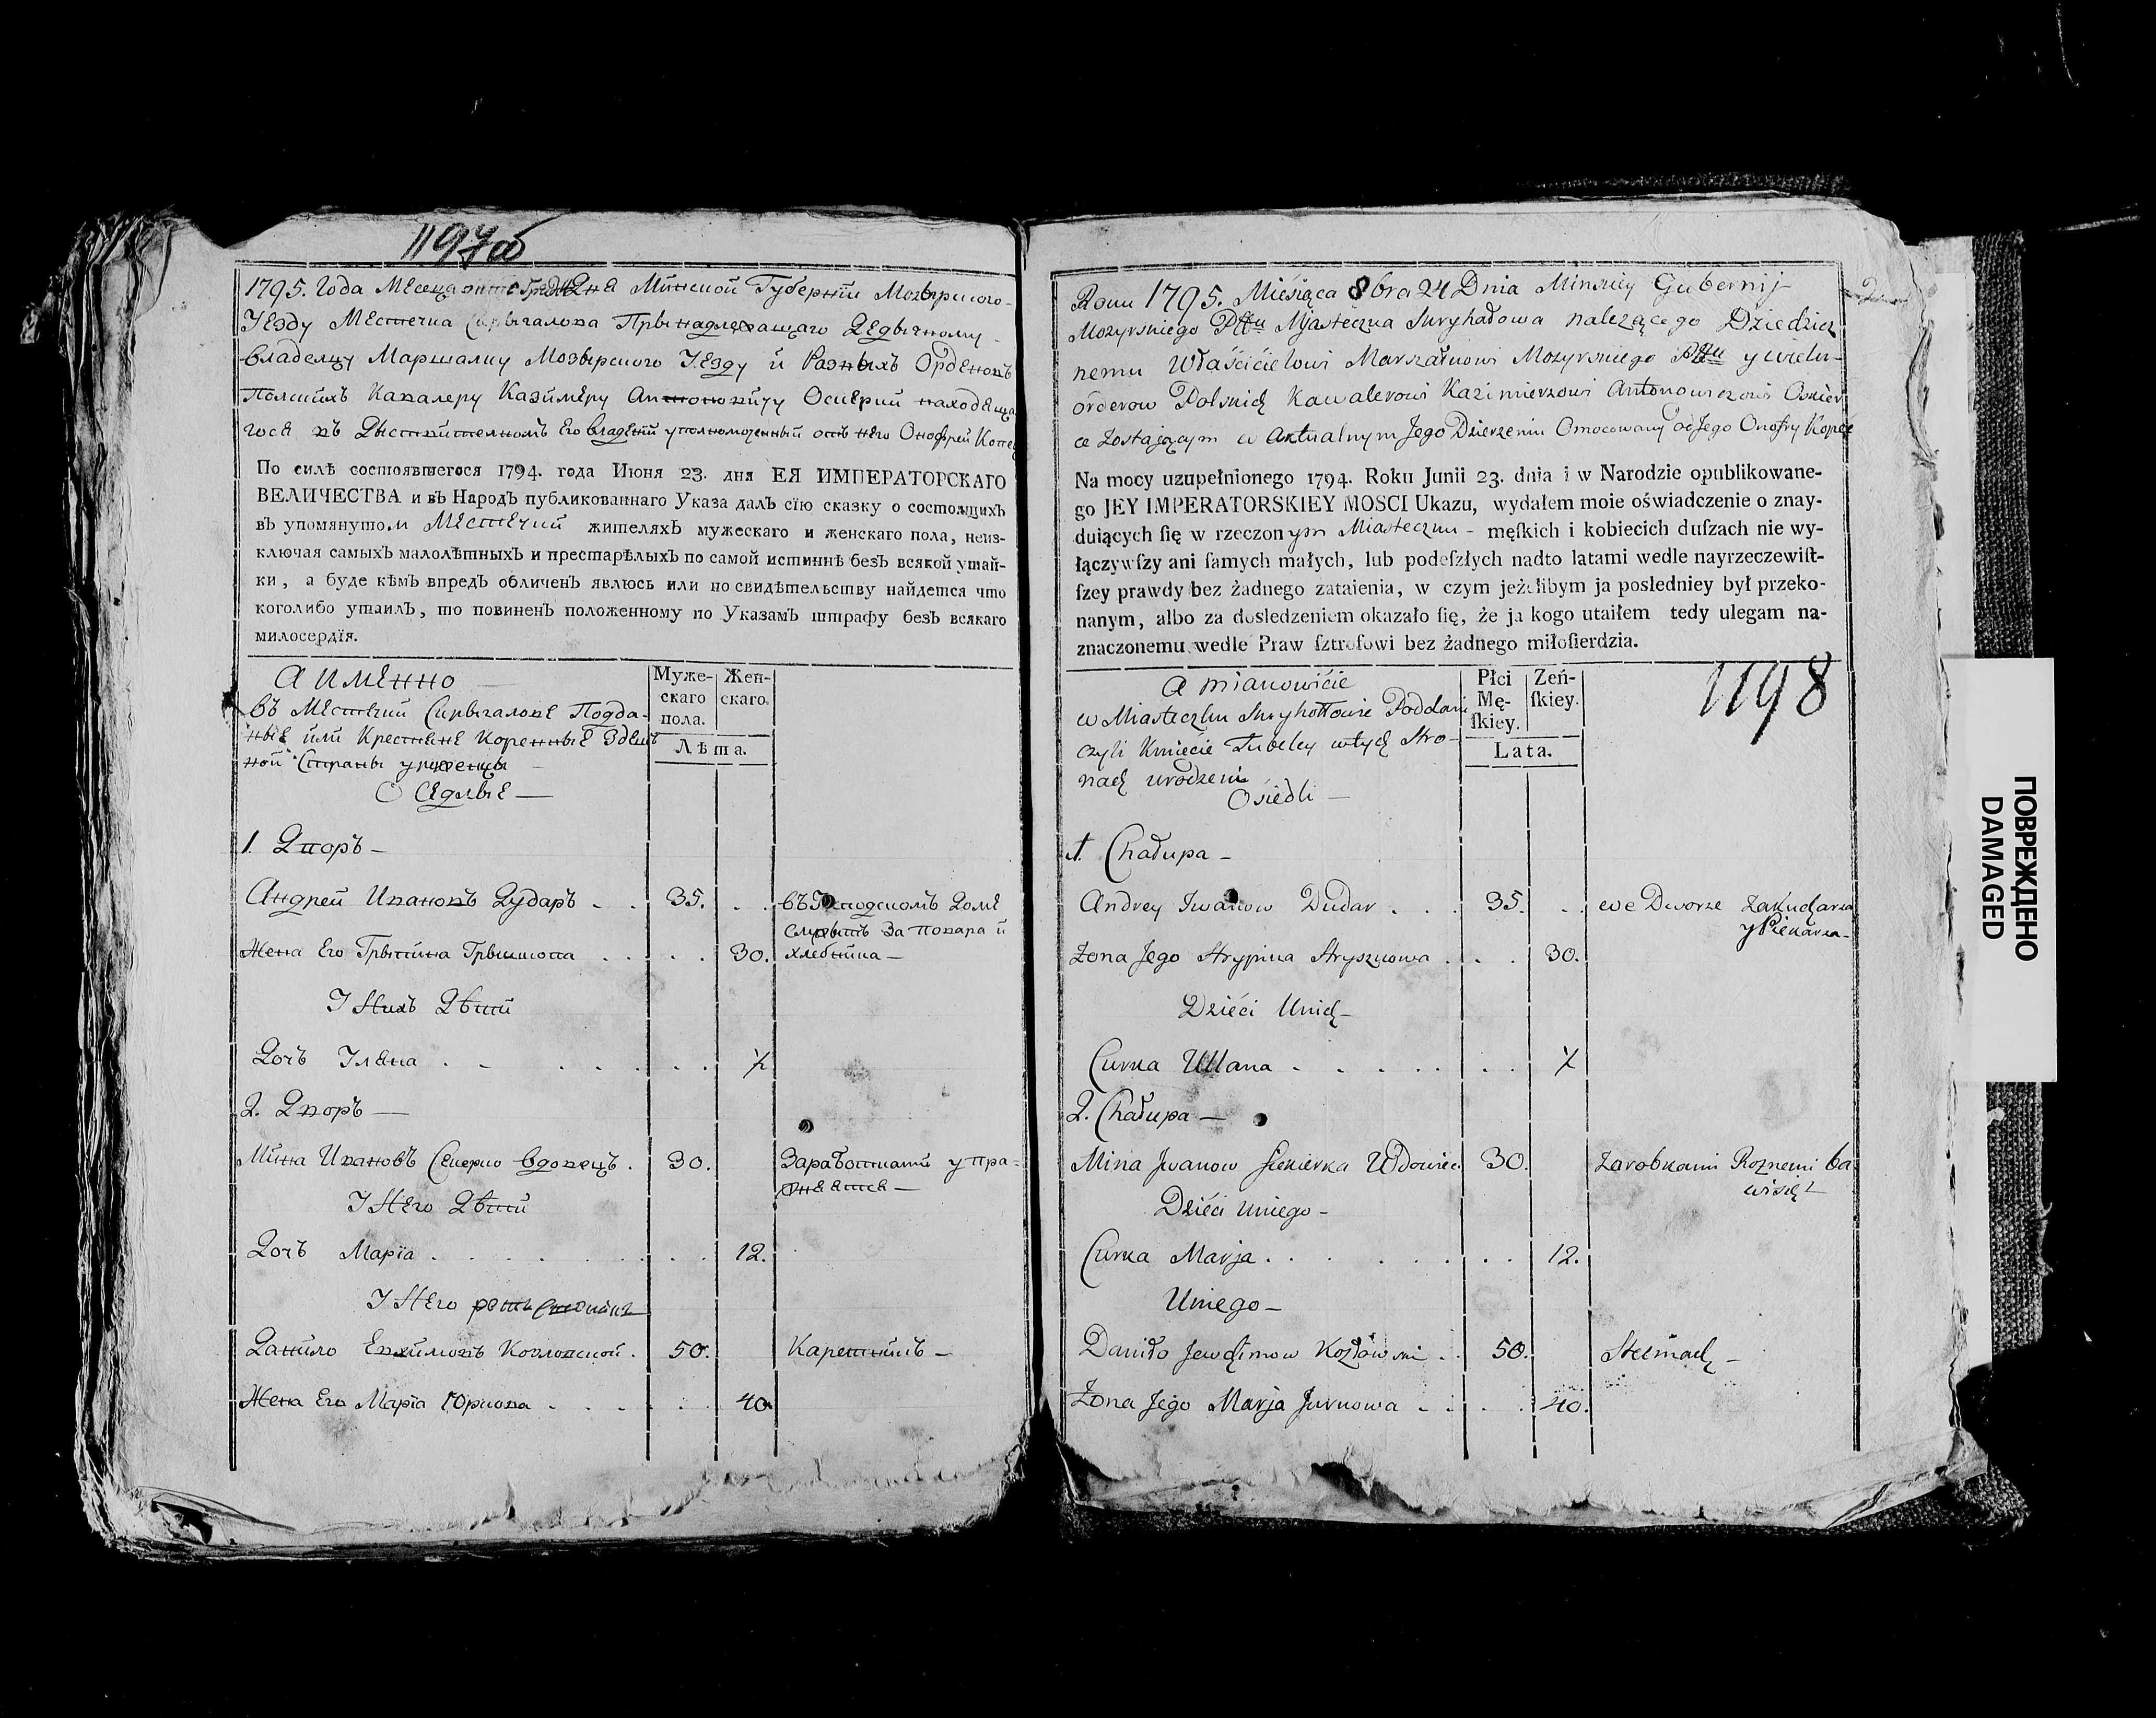 1197об
1795. Года Месеца Дня Минской Губернїи Мозырского
Уезду Местечка Скрыгалова Прынадлежащаго Дедычному
владелцу Маршалку Мозырского Уезду и Разныхъ Орденовъ
Полскихъ Кавалеру Казимеру Антоновичу Оскерки находеща
гося въ Действителномъ Его владении уполномоченный отъ него Онофрей Копец
По силѣ состоявшегося 1794. года Июня 23. дня ЕЯ ИМПЕРАТОРСКАГО
ВЕЛИЧЕСТВА и въ Народъ публикованнаго Указа далъ сїю сказку о состоящихъ
въ упомянутом Местечки жителяхъ мужескаго и женскаго пола, неиз-
ключая самыхъ малолѣтныхъ и престарѣлыхъ по самой истиннѣ безъ всякой утай-
ки, а буде кѣмъ впредъ обличенъ явлюсь или по свидѣтельству найдется что
коголибо утаилъ, то повиненъ положенному по Указамъ штрафу безъ всякаго
милосердїя.
А именно
въ Местечки Скрыгалове Подда-
ные или Крестяне коренные Здеш
ной Страны уроженцы
Оседлые —
Муже-
скаго
пола.
Жен-
скаго.
Лѣта.
1. Дворъ —
Андрей Ивановъ Дударъ . . 35. . . въ Господскомъ Доме
служитъ За повара и
Жена Его Грыпина Грышкова . . . . 30. хлебника —
У Нихъ Дѣти
Дочъ Уляна . . . . . . . 7
2. Дворъ —
Мина Ивановъ Секерко вдовецъ . 30. Заработками упра=
жняется —
У Него Дѣти
Дочъ Марїа . . . . . . . 12.
У Него
Данило Евхимовъ Козловской . 50. Каретникъ —
Жена Его Марїа Юркова . . . . . 40
2
Roku 1795. Miesiąca 8bra 24 Dnia Minskiey Gubernij
Mozyrskiego Pttu Mjasteczka Skryhałowa nalezącego Dziedzicz
nemu Właścicielowi Marszałkowi Mozyrskiego Pttu y wielu
orderow Polskich Kawalerowi Kazimierzowi Antonowiczowi Oskier
ce zostającym w Aktualnym Jego Dzierzeniu Omocowany od Jego Onofry Kopeć
Na mocy uzupełnionego 1794. Roku Junii 23. dnia i w Narodzie opublikowane-
go JEY IMPERATORSKIEY MOSCI Ukazu, wydałem moie oświadczenie o znay-
duiących ſię w rzeczonym Miasteczku - męſkich i kobiecich duſzach nie wy-
łączywſzy ani ſamych małych, lub podeſzłych nadto latami wedle nayrzeczewiſt-
ſzey prawdy bez żadnego zataienia, w czym jeżelibym ja posledniey był przeko-
nanym, albo za dosledzeniem okazało ſię, że ja kogo utaiłem tedy ulegam na-
znaczonemu wedle Praw ſztrofowi bez żadnego miłoſierdzia.
A mianowićie
w Miasteczku Skryhołłowie Poddani
czyli Kmiecie Tubelcy wtych Stro-
nach urodzeni
Osiedli —
Płci
Mę-
ſkiey.
Zeń-
ſkiey.
Lata.
1198
1. Chałupa —
Andrey Iwanow Dudar . . . 35. . . we Dworze za kucharza
y Piekarza —
Zona Jego Hrypina Hryszkowa . . . 30.
Dzieći Unich —
Curka Ullana . . . . . . . 7
2. Chałupa —
Mina Jwanow Siekierka Wdowiec 30. Zarobkami Roznemi ba
wi się
Dzieći Uniego —
Curka Marja . . . . . . . 12.
Uniego —
Daniło Jewchimow Kozłowski . . 50. Stelmach —
Zona Jego Marja Jurkowa . . . . 40.
ПОВРЕЖДЕНО
DAMAGED